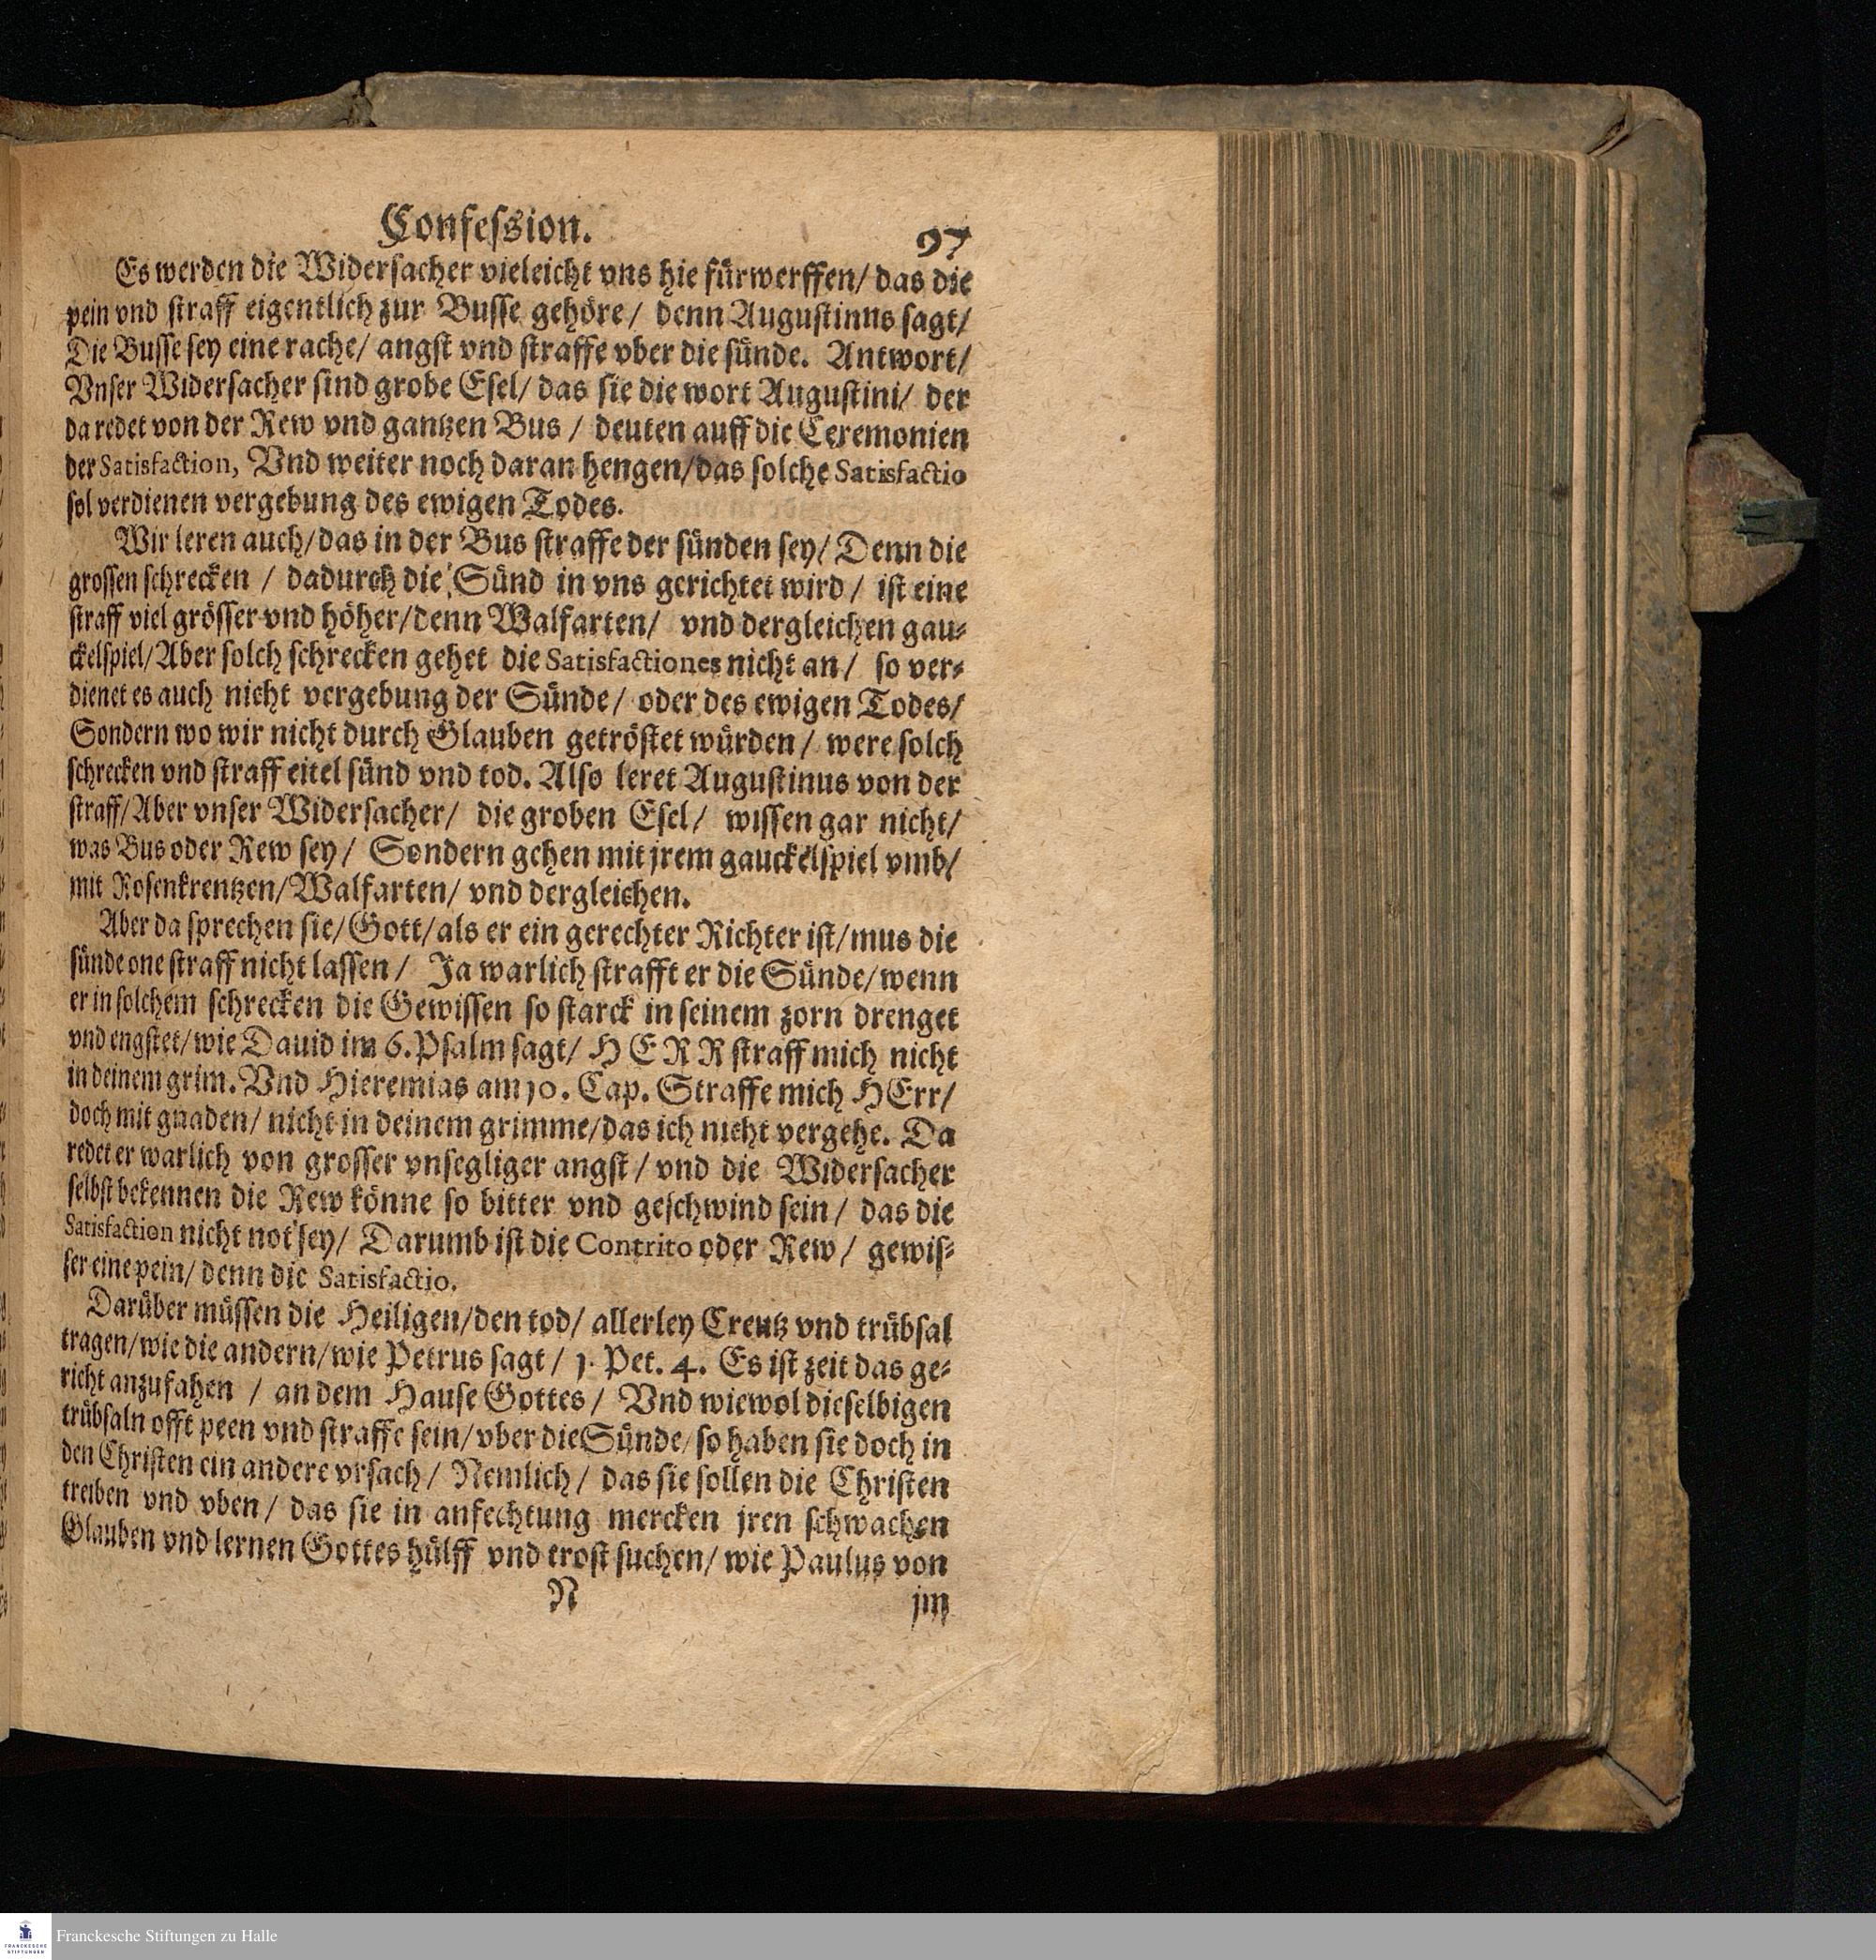 Confession.
97
Es werden die Widersacher vieleicht vns hie fürwerffen/ das die
pein vnd straff eigentlich zur Busse gehöre/ denn Augustinus sagt/
Die Busse sey eine rache/ angst vnd straffe vber die sünde. Antwort/
Vnser Widersacher sind grobe Esel/ das sie die wort Augustini/ der
da redet von der Rew vnd gantzen Bus / deuten auff die Ceremonien
der Satisfaction, Vnd weiter noch daran hengen/das solche Satisfactio
sol verdienen vergebung des ewigen Todes.
Wir leren auch/das in der Bus straffe der sünden sey/ Denn die
grossen schrecken / dadurch die Sünd in vns gerichtet wird / ist eine
straff viel grösser vnd höher/denn Walfarten/ vnd dergleichen gau-
ckelspiel/Aber solch schrecken gehet die Satisfactiones nicht an/ so ver-
dienet es auch nicht vergebung der Sünde/ oder des ewigen Todes/
Sondern wo wir nicht durch Glauben getröstet würden/ were solch
schrecken vnd straff eitel sünd vnd tod. Also leret Augustinus von der
straff/Aber vnser Widersacher/ die groben Esel/ wissen gar nicht/
was Bus oder Rew sey/ Sondern gehen mit jrem gauckelspiel vmb/
mit Rosenkrentzen/Walfarten/ vnd dergleichen.
Aber da sprechen sie/Gott/als er ein gerechter Richter ist/mus die
sünde one straff nicht lassen/ Ja warlich strafft er die Sünde/wenn
er in solchem schrecken die Gewissen so starck in seinem zorn drenget
vnd engstet/wie Dauid im 6.Psalm sagt/ HERR straff mich nicht
in deinem grim. Vnd Hieremias am 10. Cap. Straffe mich HErr/
doch mit gnaden/ nicht in deinem grimme/das ich nicht vergehe. Da
redet er warlich von grosser vnsegliger angst/vnd die Widersacher
selbst bekennen die Rew könne so bitter vnd geschwind sein/ das die
Satisfaction nicht not sey/ Darumb ist die Contrito oder Rew/ gewis-
ser eine pein/ denn die Satisfactio.
Darüber müssen die Heiligen/den tod/ allerley Creutz vnd trübsal
tragen/wie die andern/wie Petrus sagt/ 1. Pet. 4. Es ist zeit das ge-
richt anzufahen / an dem Hause Gottes/ Vnd wiewol dieselbigen
trübsaln offt peen vnd straffe sein/vber die Sünde/so haben sie doch in
den Christen ein andere vrsach/ Nemlich/ das sie sollen die Christen
treiben vnd vben/ das sie in anfechtung mercken jren schwachen
Glauben vnd lernen Gottes hülff vnd trost suchen/ wie Paulus von
N
jm
Franckesche Stiftungen zu Halle
FRANCKESCHE
STIFTUNGEN